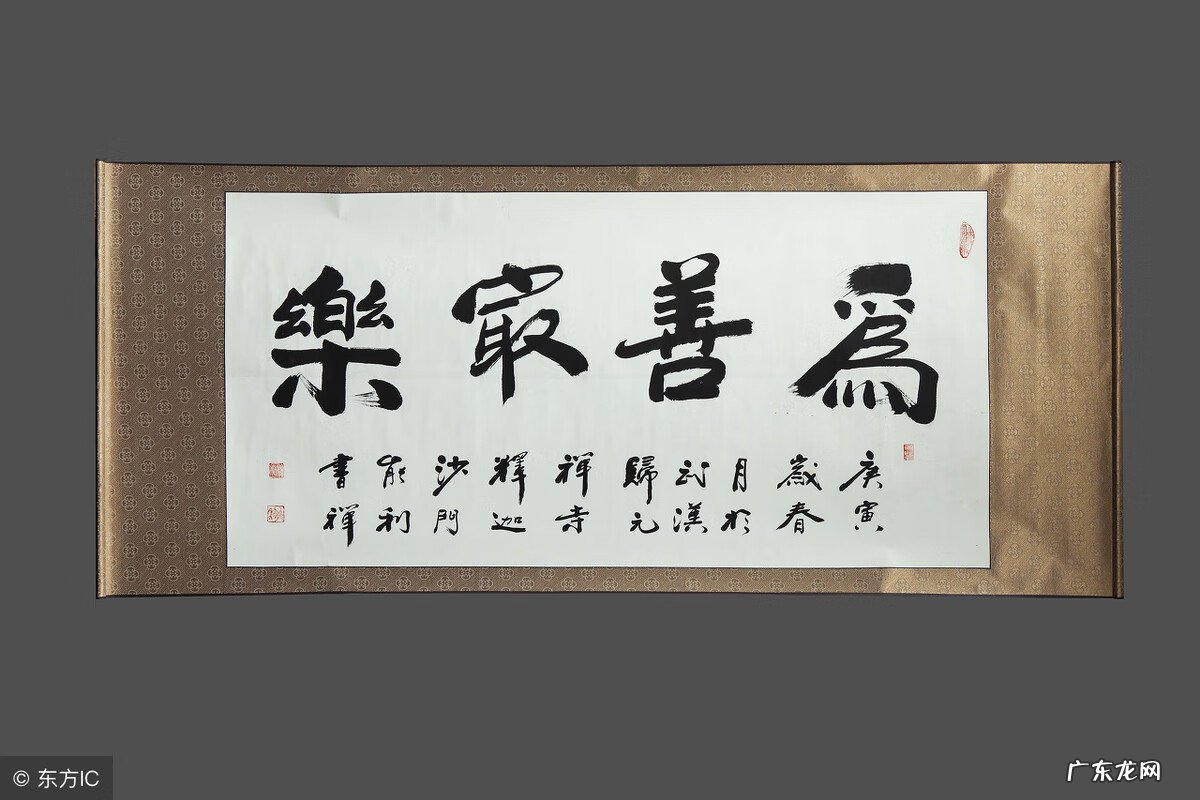 爲善㝡樂
庚寅
歲春
月於
武漢
歸元
禪寺
釋迦
沙門
能利
書禪
© 东方IC
广东龙网